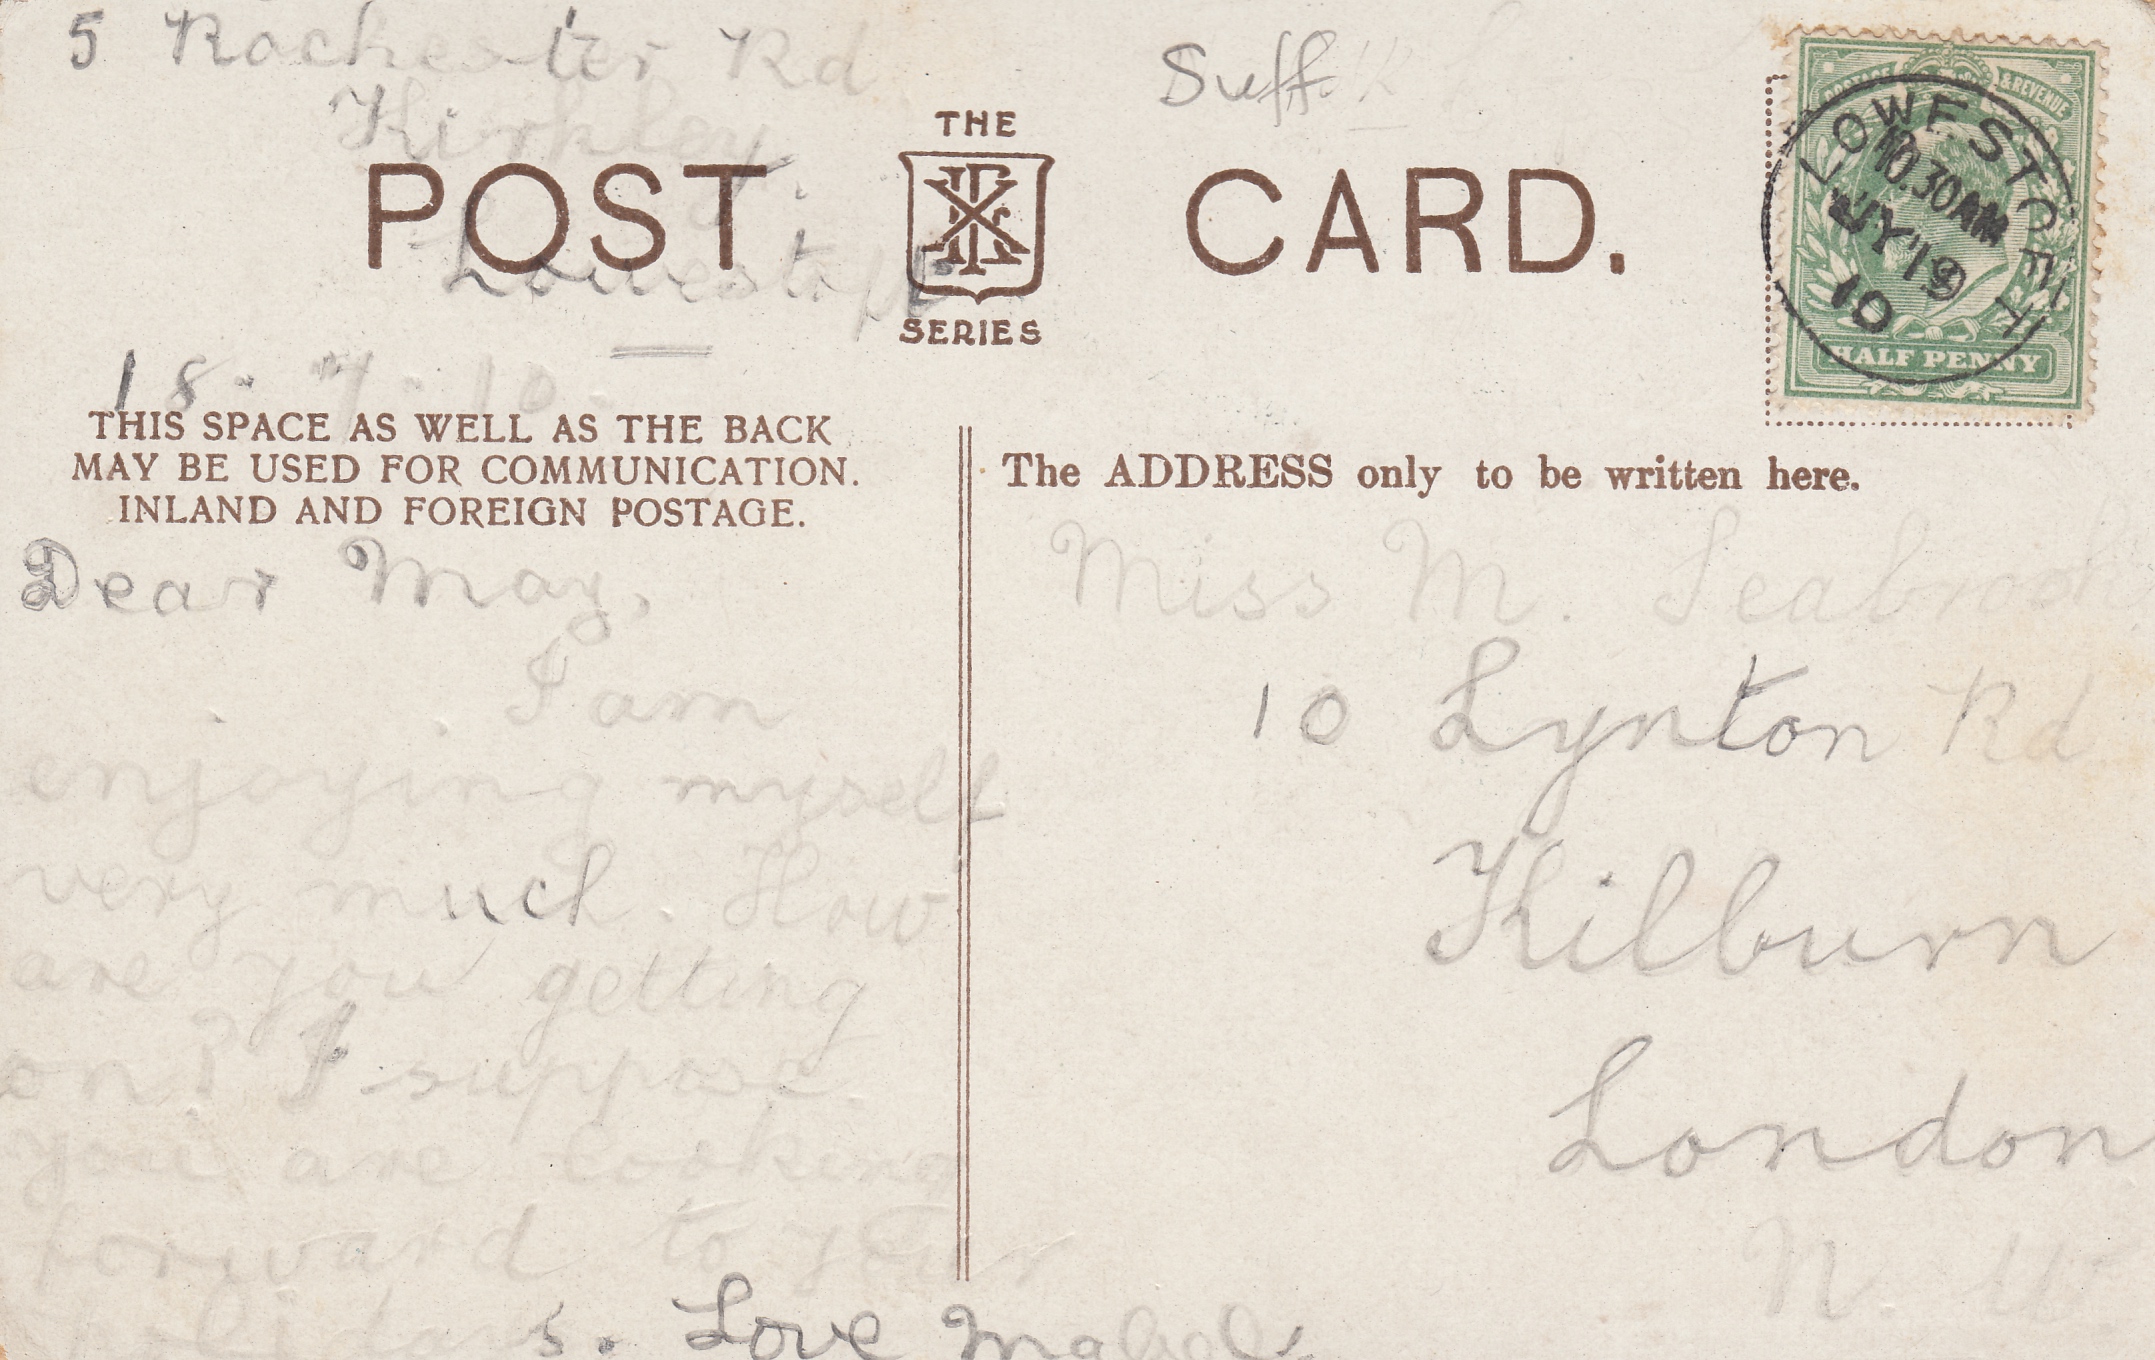 5 Rochester Rd
Kirkley
Lowestoft
Suff.
18.7.10.
THE
SERIES
POST CARD.
LOWESTOFT
10.30AM
JY 19
10
POSTAGE & REVENUE
HALF PENNY
THIS SPACE AS WELL AS THE BACK
MAY BE USED FOR COMMUNICATION.
INLAND AND FOREIGN POSTAGE.
Dear May,
I am
enjoying myself
very much. How
are you getting
on? I suppose
you are looking
forward to your
holidays. Love Mabel.
The ADDRESS only to be written here.
Miss M. Seabrook
10 Lynton Rd
Kilburn
London
N. W.